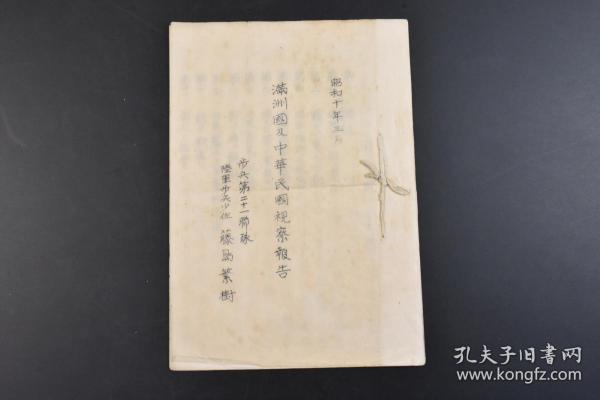 昭和十年三月
満洲國及中華民國視察報告
歩兵第二十一聯隊
陸軍歩兵少佐 藤島繁樹
孔夫子旧書网
www.kongfz.com